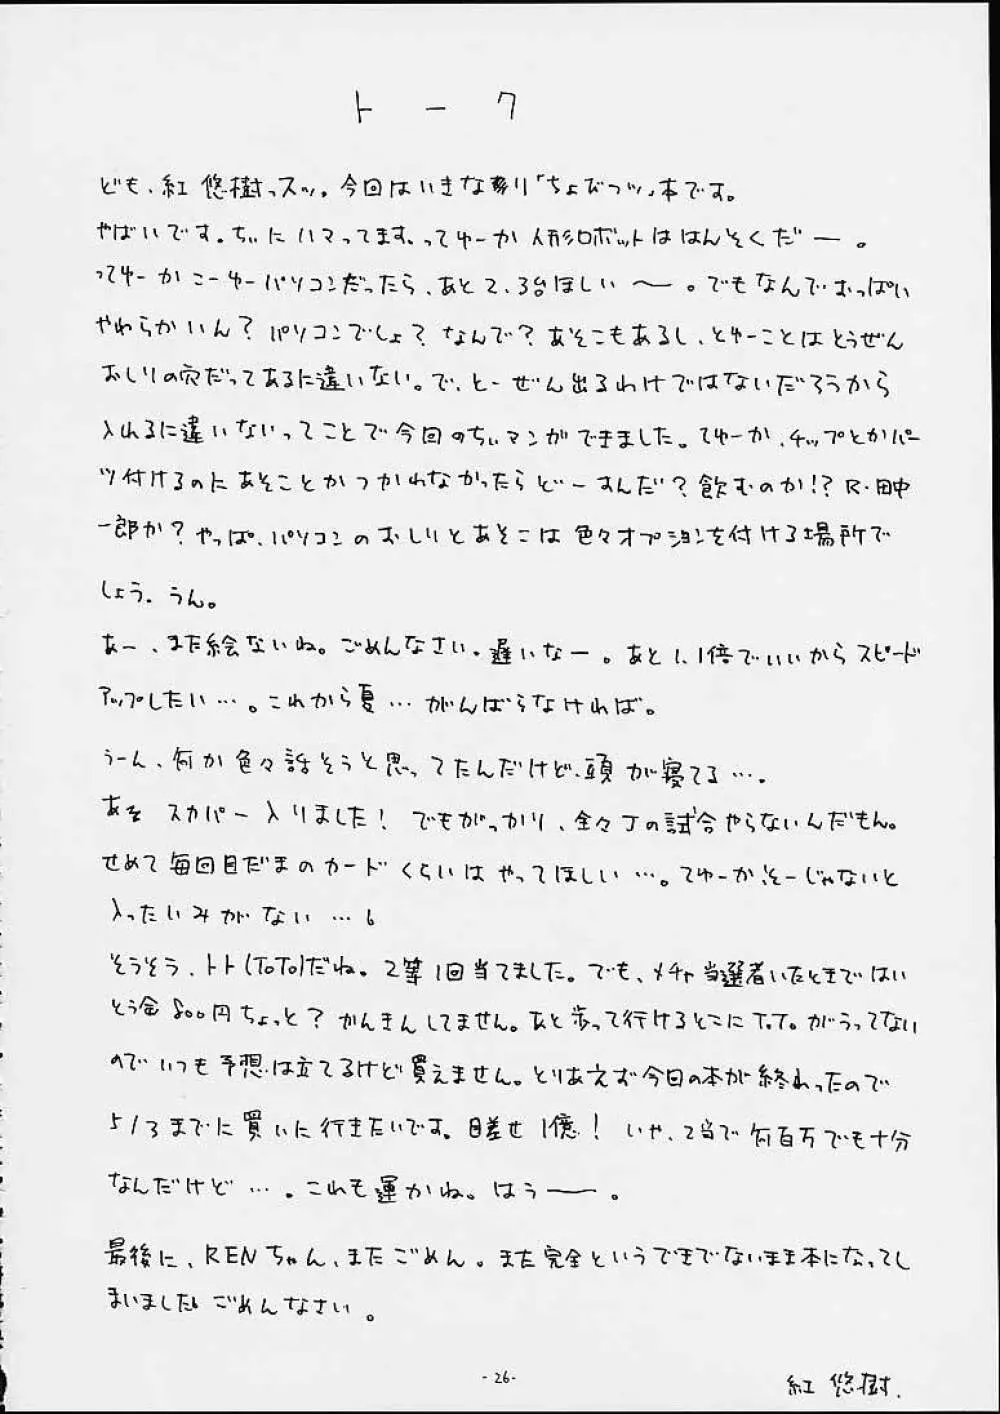 トーク
ども、紅 悠樹っスッ。今回はいきなり「ちょびっツ」本です。
やばいです。ちぃにハマってます。ってゆーか人形ロボットははんそくだー。
ってゆーかこーゆーパソコンだったら、あと2、3台ほしい〜。でもなんでおっぱい
やわらかいん？パソコンでしょ？なんで？あそこもあるし、とゆーことはとうぜん
おしりの穴だってあるに違いない。で、とーぜん出るわけではないだろうから
入れるに違いないってことで今回のちぃマンガできました。てゆーか、チップとかパー
ツ付けるのにあそことかつかわなかったらどーすんだ？飲むのか!？R・田中
一郎か？やっぱ、パソコンのおしりとあそこは色々オプションを付ける場所で
しょう。うん。
あー、また絵ないね。ごめんなさい。遅いなー。あと1.1倍でいいからスピード
アップしたい…。これから夏…がんばらなければ。
うーん、何か色々話そうと思ってたんだけど、頭が寝てる…。
あそ スカパー入りました！でもがっかり、全々Jの試合やらないんだもん。
せめて毎回目だまのカードくらいはやってほしい…。てゆーか、そーじゃないと
入ったいみがない…。
そうそう、トト(ToTo)だね。2等1回当てました。でも、メチャ当選者いたときではい
とう金800円ちょっと？かんきんしてません。あと歩って行けるとこにT.T.がうってない
のでいつも予想は立てるけど買えません。とりあえず今日の本が終わったので
5/3までに買いに行きたいです。目差せ1億！いや、2当で何百万でも十分
なんだけど…。これも運かね。はうー。
最後に、RENちゃん、またごめん。また完全というできでないまま本になってし
まいました。ごめんなさい。
-26-
紅 悠樹.